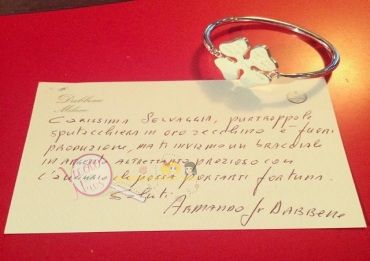 Dabbene
Milano
Carissima Selvaggia, purtroppo la
sputacchiera in oro zecchino è fuori
produzione, ma ti invio un bracciale
in argento altrettanto prezioso con
l'augurio che possa portarti fortuna.
Saluti.
Armando Jr Dabbene